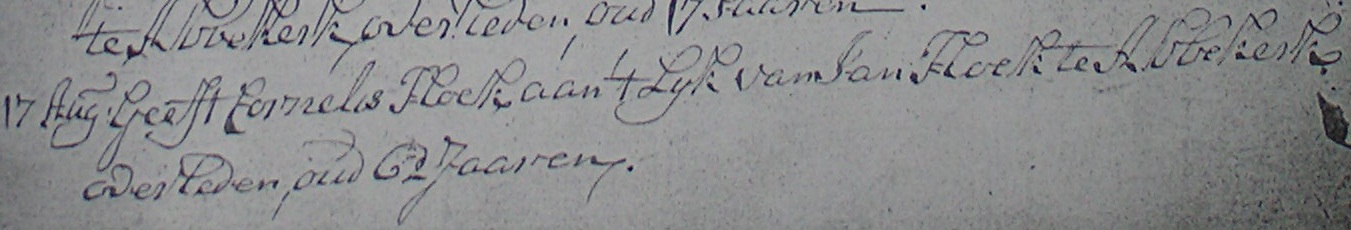 te Abbekerk, overleden, oud 17 Jaaren.
17 Aug. Geeft Cornelis Floek, aan 't Lyk van Jan Floek te Abbekerk,
overleden, oud 62 Jaaren.